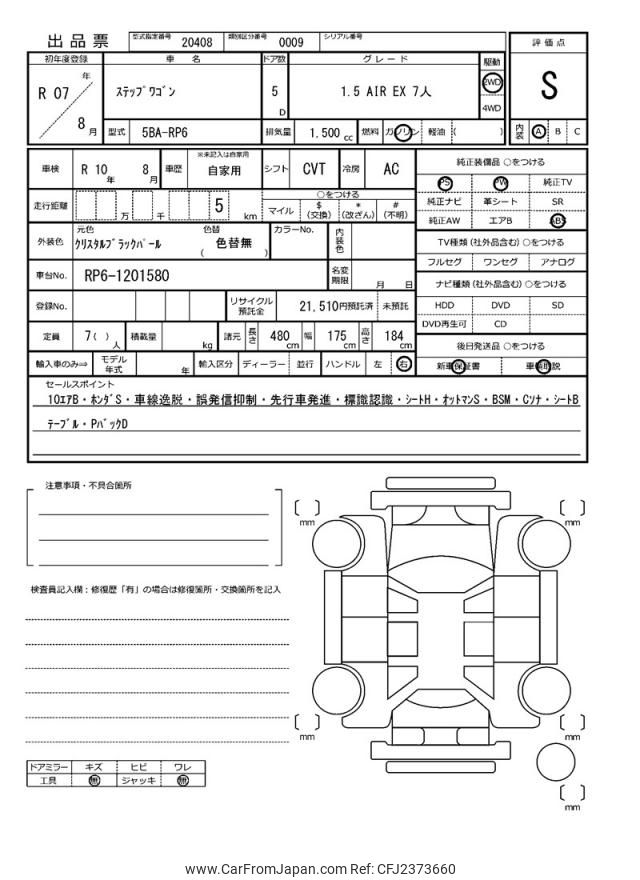 出品票 型式指定番号 20408 類別区分番号 0009 シリアル番号
評価点
S
内装 A B C
初年度登録 車名 ドア数 グレード 駆動
R 07 年 8 月
ｽﾃｯﾌﾟﾜｺﾞﾝ 5 D 1.5 AIR EX 7人 2WD 4WD
型式 5BA-RP6 排気量 1.500 cc 燃料 ガソリン 軽油 ( )
車検 R 10 年 8 月 車歴 ※未記入は自家用 自家用 シフト CVT 冷房 AC
走行距離 万 千 5 km ○をつける
マイル $ (交換) * (改ざん) # (不明)
外装色 元色 ｸﾘｽﾀﾙﾌﾞﾗｯｸﾊﾟｰﾙ 色替 ( 色替無 ) カラーNo. 内装色
車台No. RP6-1201580 名変期限 月 日
登録No. リサイクル預託金 21,510円預託済 未預託
定員 7( ) 人 積載量 kg 諸元 長さ 480 cm 幅 175 cm 高さ 184 cm
輸入車のみ⇒ モデル年式 年 輸入区分 ディーラー 並行 ハンドル 左 右
純正装備品 ○をつける
PS PW 純正TV
純正ナビ 革シート SR
純正AW エアB ABS
TV種類 (社外品含む) ○をつける
フルセグ ワンセグ アナログ
ナビ種類 (社外品含む) ○をつける
HDD DVD SD
DVD再生可 CD
後日発送品 ○をつける
新車保証書 車輌取説
セールスポイント
10ｴｱB・ﾎﾝﾀﾞS・車線逸脱・誤発信抑制・先行車発進・標識認識・ｼｰﾄH・ｵｯﾄﾏﾝS・BSM・Cｿﾅ・ｼｰﾄB
ﾃｰﾌﾞﾙ・PﾊﾞｯｸD
注意事項・不具合箇所
検査員記入欄：修復歴「有」の場合は修復箇所・交換箇所を記入
mm
mm
mm
mm
mm
ドアミラー キズ ヒビ ワレ
工具 無 ジャッキ 無
www.CarFromJapan.com Ref: CFJ2373660